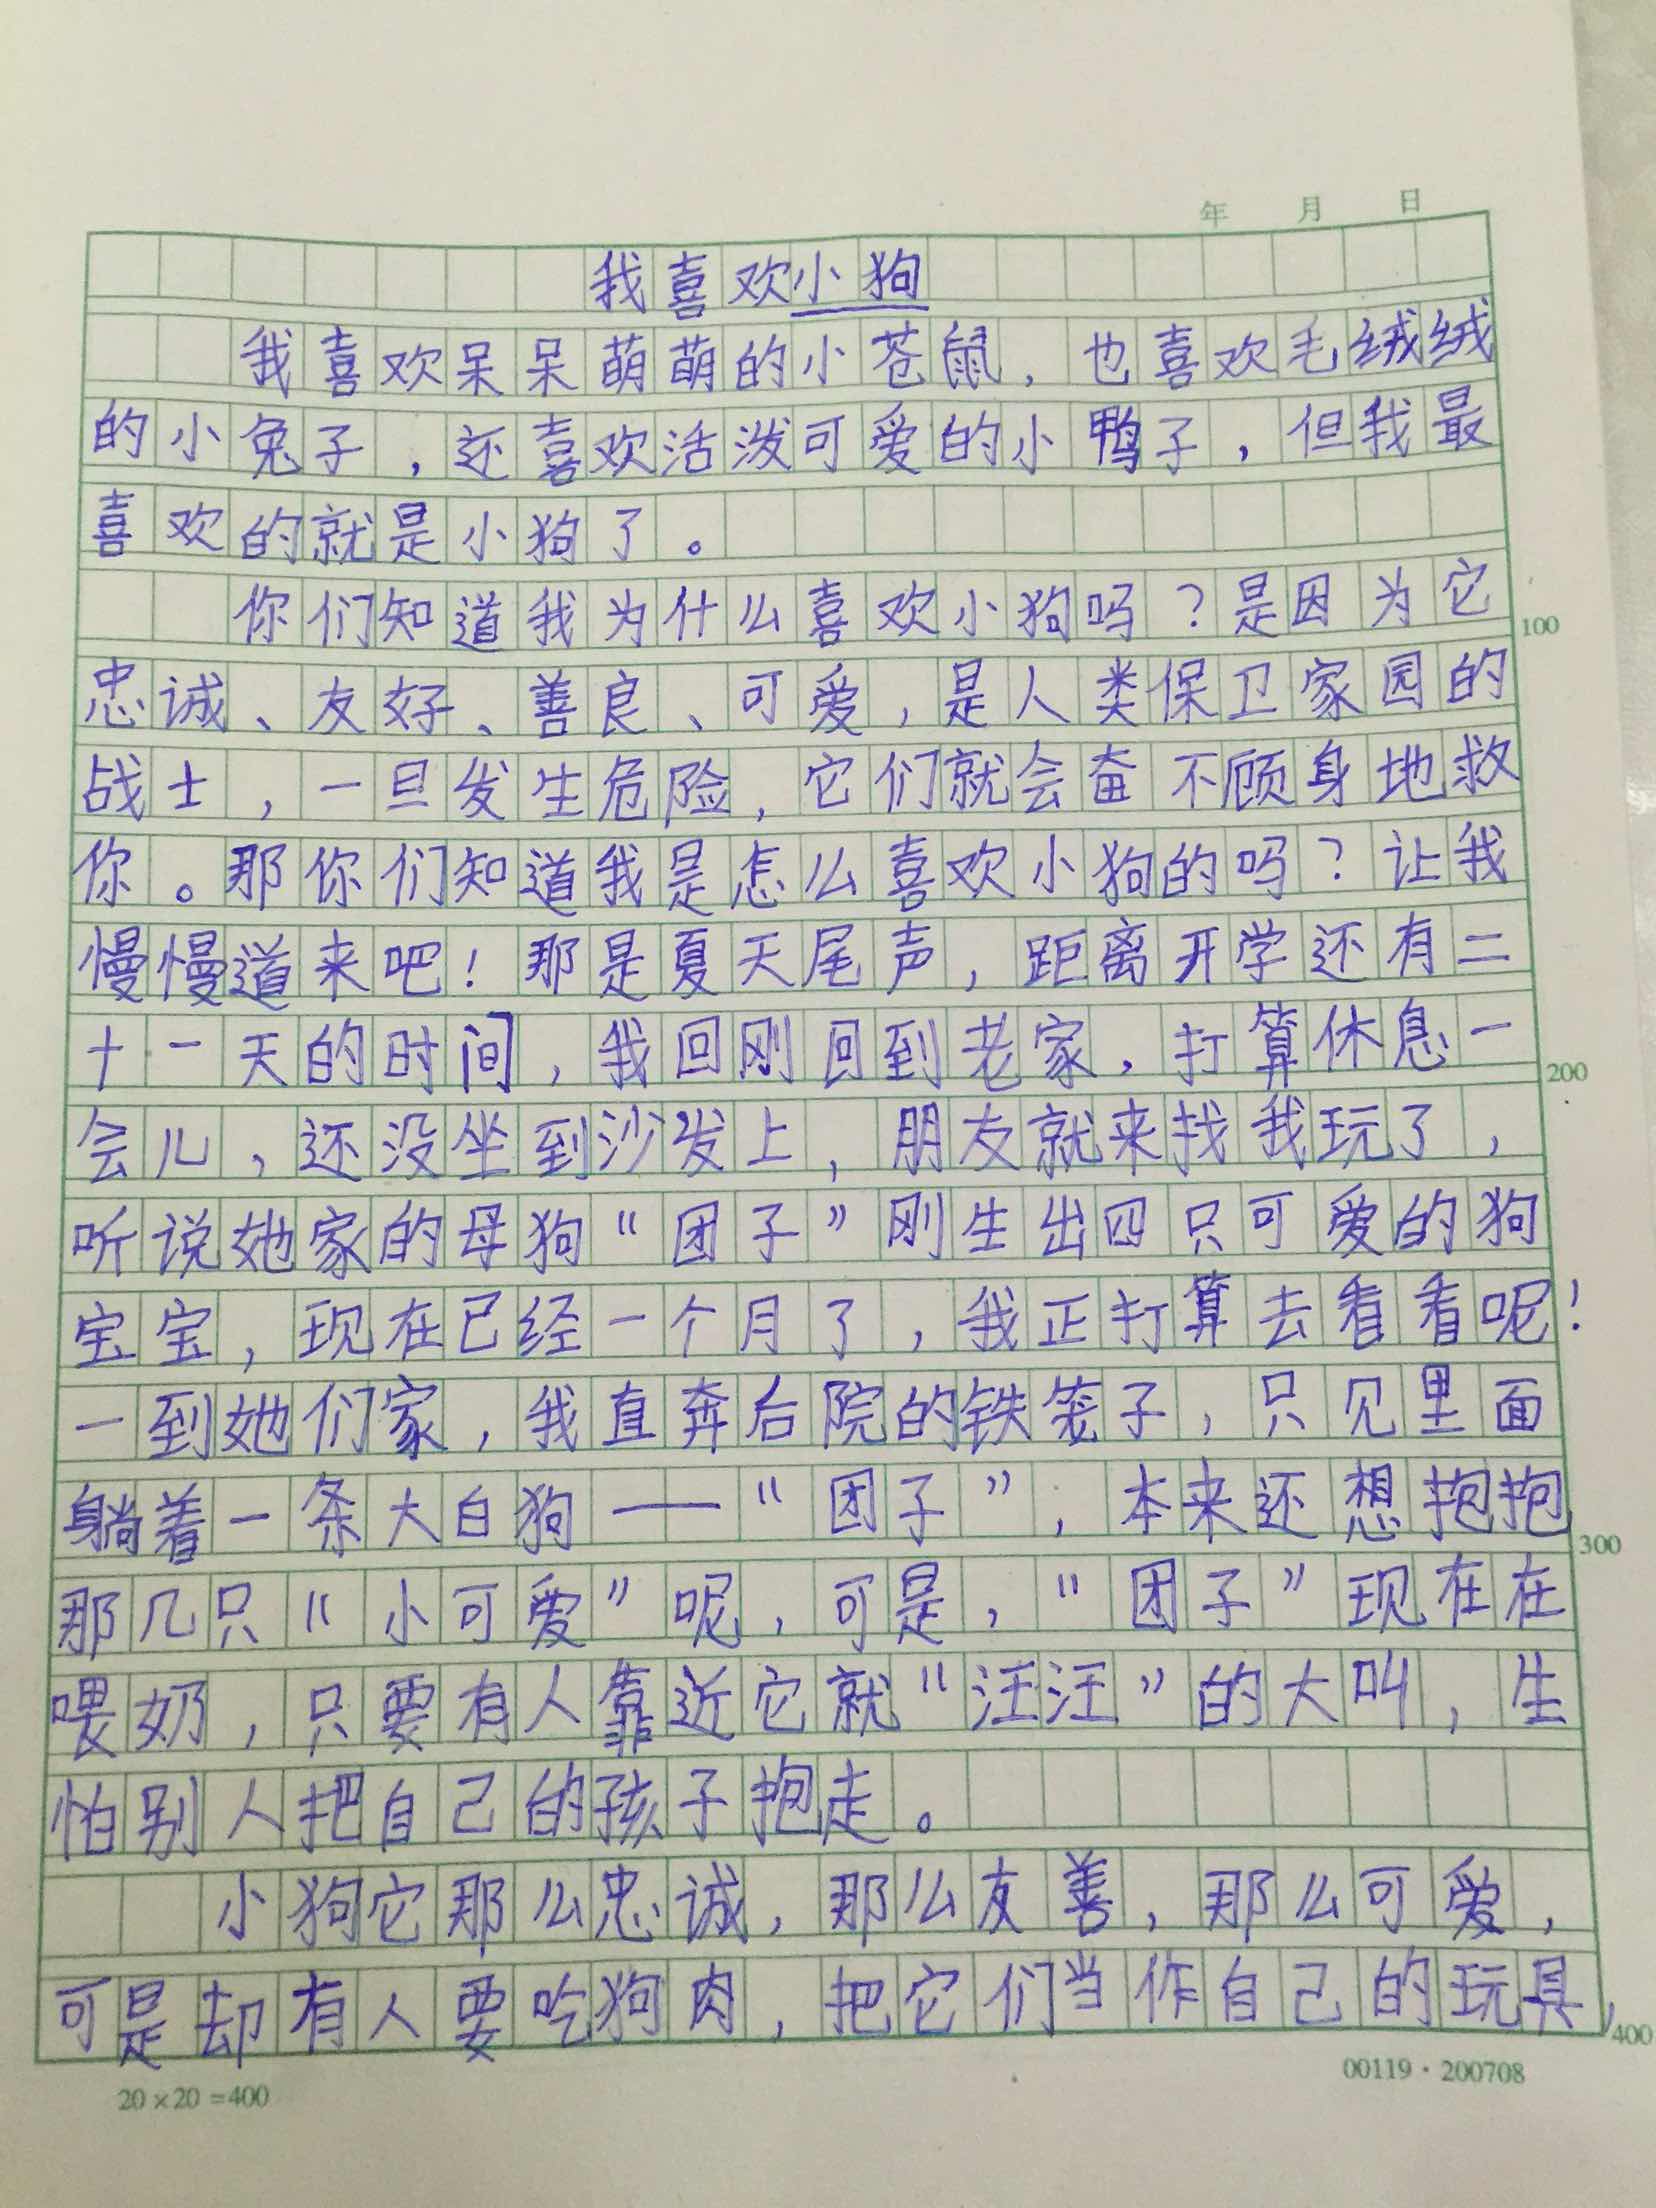 年 月 日
我喜欢小狗
我喜欢呆呆萌萌的小苍鼠，也喜欢毛绒绒
的小兔子，还喜欢活泼可爱的小鸭子，但我最
喜欢的就是小狗了。
你们知道我为什么喜欢小狗吗？是因为它
100
忠诚、友好、善良、可爱，是人类保卫家园的
战士，一旦发生危险，它们就会奋不顾身地救
你。那你们知道我是怎么喜欢小狗的吗？让我
慢慢道来吧！那是夏天尾声，距离开学还有二
十一天的时间，我回刚回到老家，打算休息一
200
会儿，还没坐到沙发上，朋友就来找我玩了，
听说她家的母狗“团子”刚生出四只可爱的狗
宝宝，现在已经一个月了，我正打算去看看呢！
一到她们家，我直奔后院的铁笼子，只见里面
躺着一条大白狗——“团子”，本来还想抱抱
300
那几只“小可爱”呢，可是，“团子”现在在
喂奶，只要有人靠近它就“汪汪”的大叫，生
怕别人把自己的孩子抱走。
小狗它那么忠诚，那么友善，那么可爱，
可是却有人要吃狗肉，把它们当作自己的玩具，
400
20×20=400
00119·200708